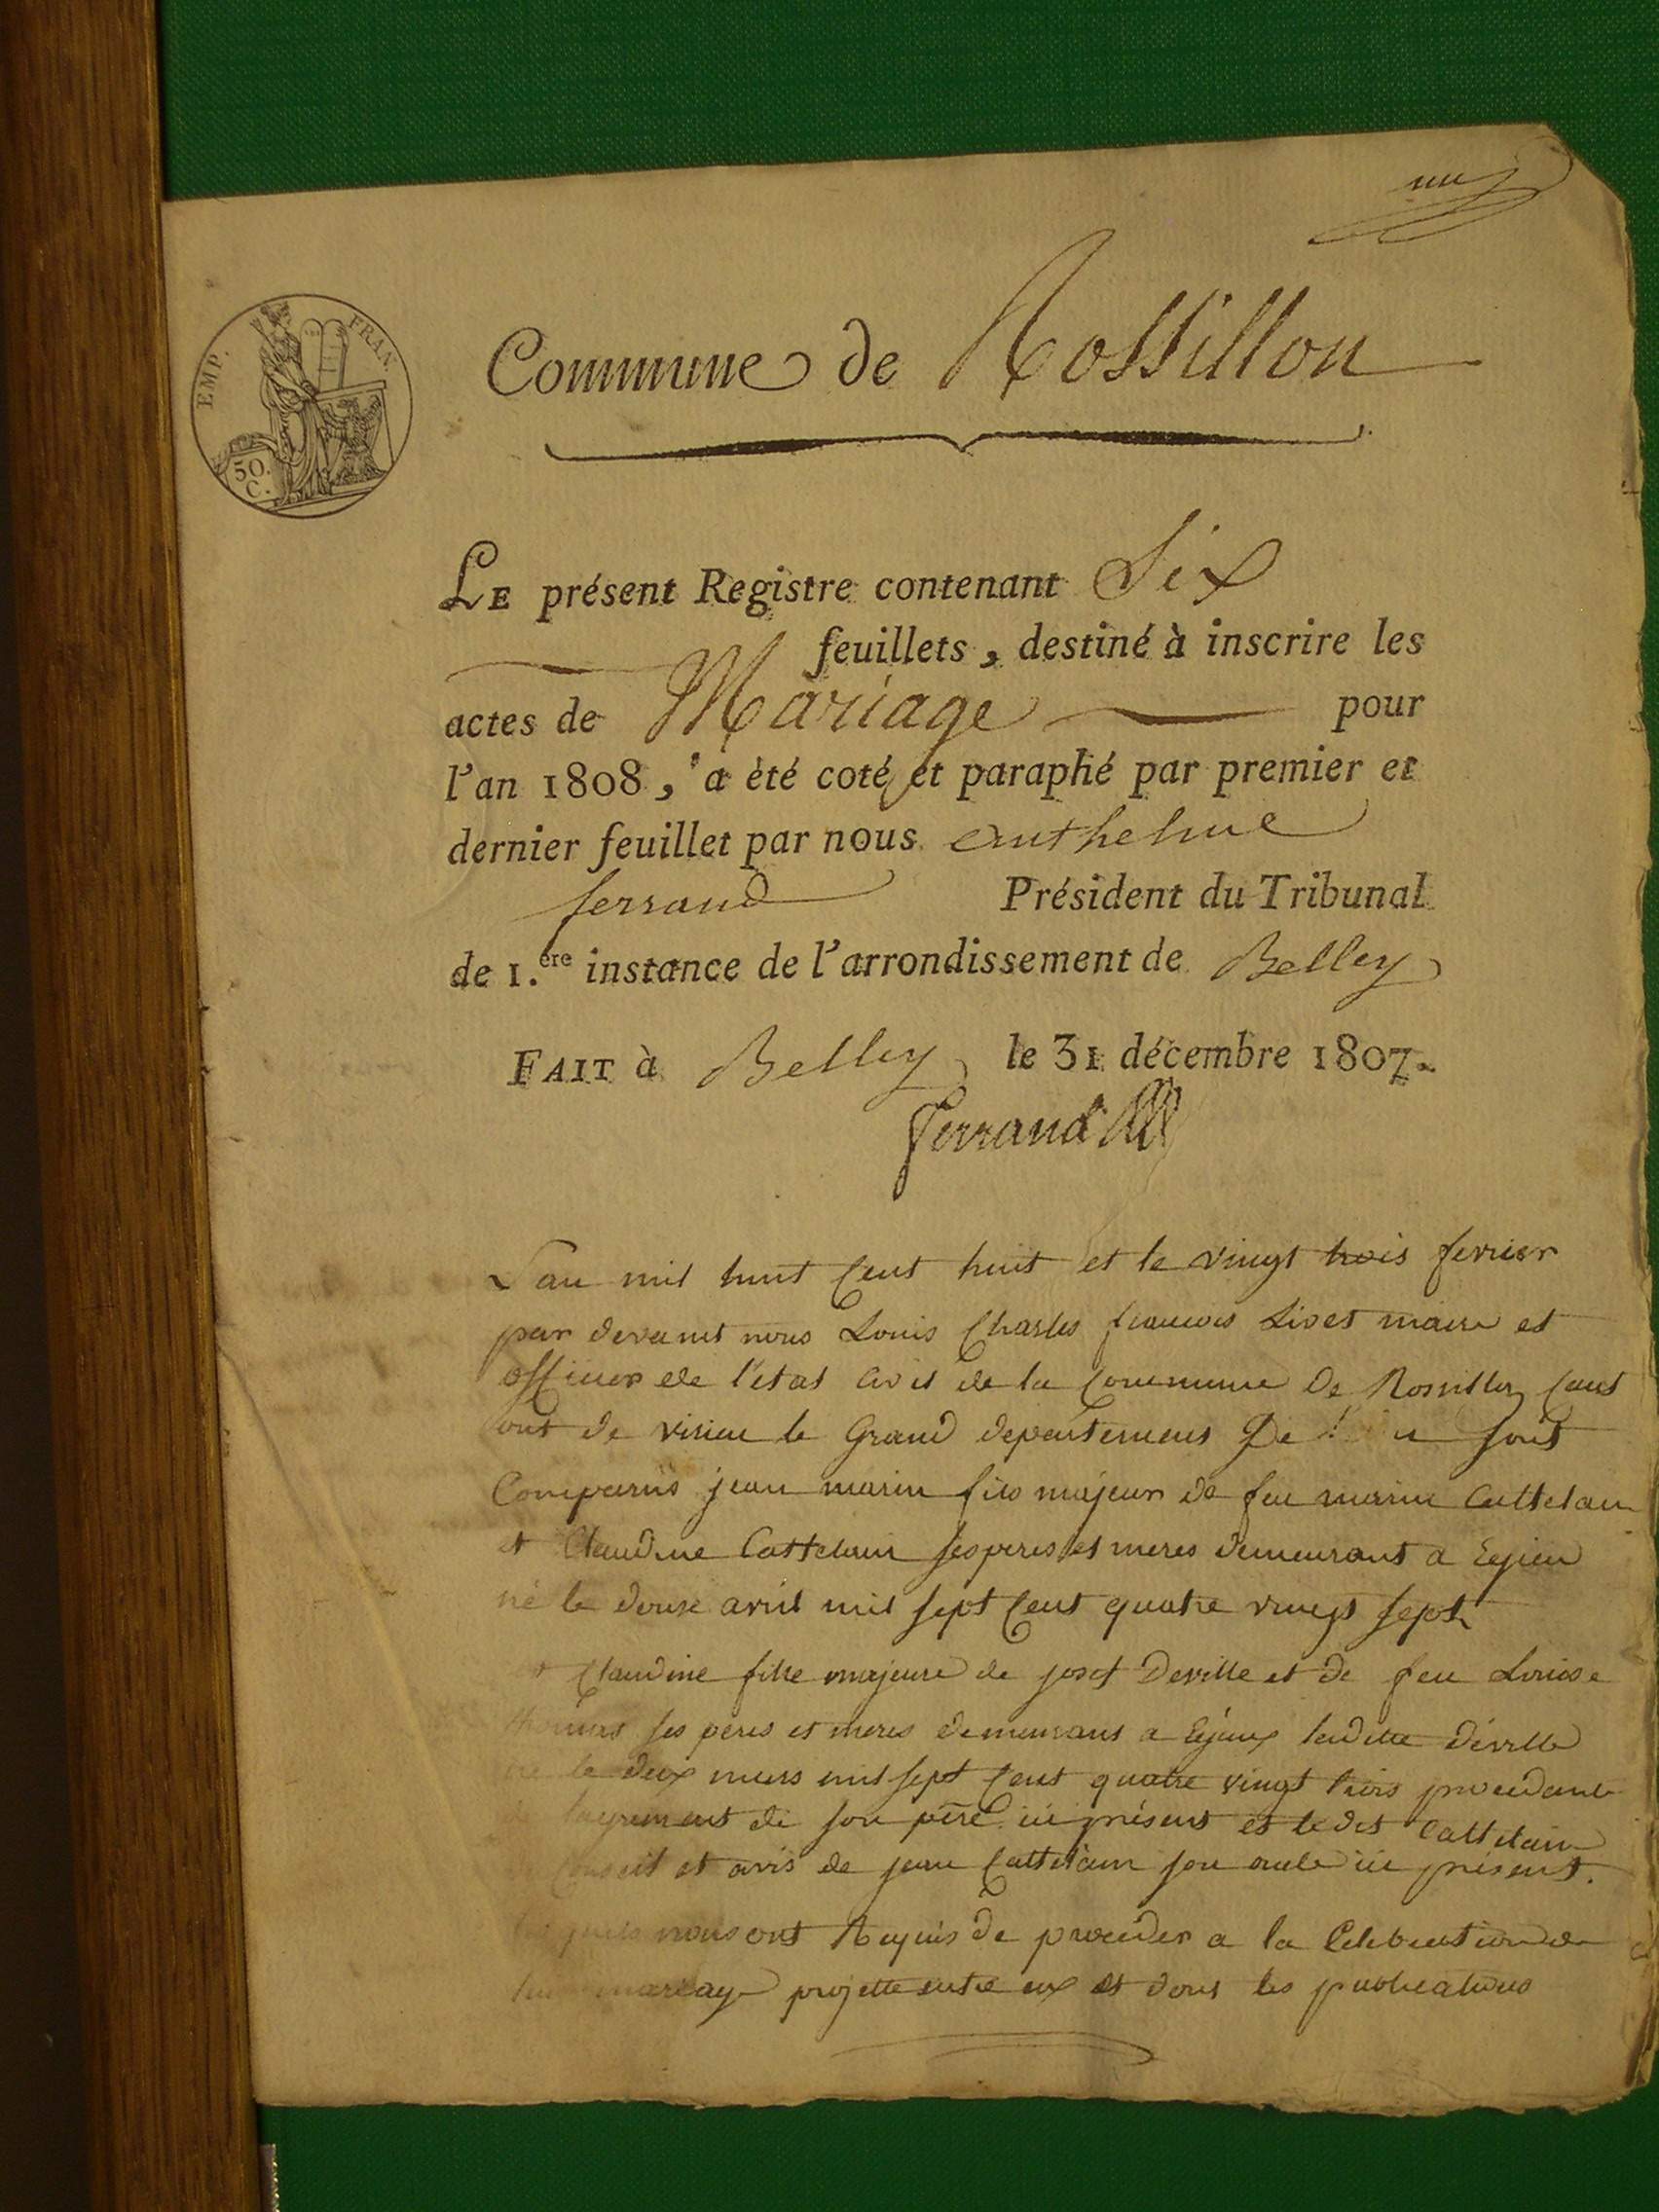 un
EMP. FRAN.
50.
C.
Commune de Rossillon
LE présent Registre contenant Six
feuillets, destiné à inscrire les
actes de Mariage pour
l'an 1808, a été coté et paraphé par premier et
dernier feuillet par nous anthelme
ferrand Président du Tribunal
de 1.ère instance de l'arrondissement de Belley
FAIT à Belley le 31 décembre 1807.
Ferrand
L'an mil huit cent huit et le vingt trois fevrier
par devant nous Louis Charles francois Livet maire et
officier de l'etat civil de la Commune De Rossillon Cant
ont de virieu le Grand departement De sont
Comparus jean marin fils majeur de feu marin Cattelain
et Claudine Cattelain ses peres et meres demeurant a Eyieu
né le douze avril mil sept cent quatre vingt sept
Claudine fille majeure de josef Deville et de feu Louise
thomas ses peres et meres demeurant a laditte déville
né le deux mars mil sept cent quatre vingt trois procedant
de lagrement de son père ici présent et ledit Cattelain
conseil et avis de jean Cattelain son oncle ici présent.
lesquels nous ont Requis de proceder a la Celebration de
leur mariage projette entre eux et dont les publications